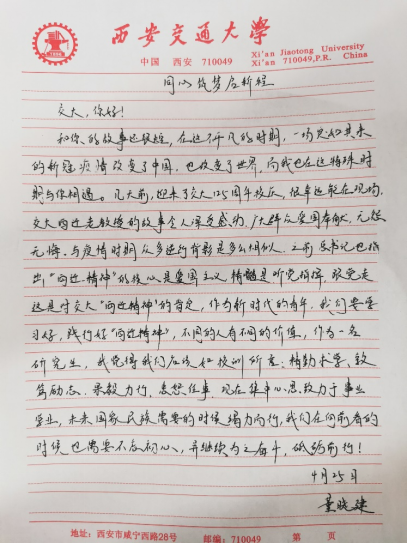 西安交通大学
中国 西安 710049
Xi'an Jiaotong University
Xi'an 710049,P.R. China
同心筑梦启新程
交大，你好！
和你的故事还很短，在这不平凡的时期，一场突如其来
的新冠疫情改变了中国，也改变了世界，而我也在这特殊时
期与你相遇。几天前，迎来了交大125周年校庆，很幸运能在现场，
交大西迁老教授的故事令人深受感动，广大群众爱国奉献，无怨
无悔，与疫情时期众多逆行背影是多么相似。之前总书记也指
出"西迁精神"的核心是爱国主义，精髓是听党指挥，跟党走
这是对交大"西迁精神"的肯定，作为新时代的青年，我们要学
习好，践行好"西迁精神"，不同的人有不同的价值，作为一名
研究生，我觉得我们应该如校训所言：精勤求学，敦
笃励志，果毅力行，忠恕任事，现在集中心思致力于事业
学业，未来国家民族需要的时候竭力而行，我们在向前看的
时候也需要不忘初心，并继续为之奋斗，砥砺前行！
4月25日
董晓建
地址：西安市咸宁西路28号 邮编：710049 第 页